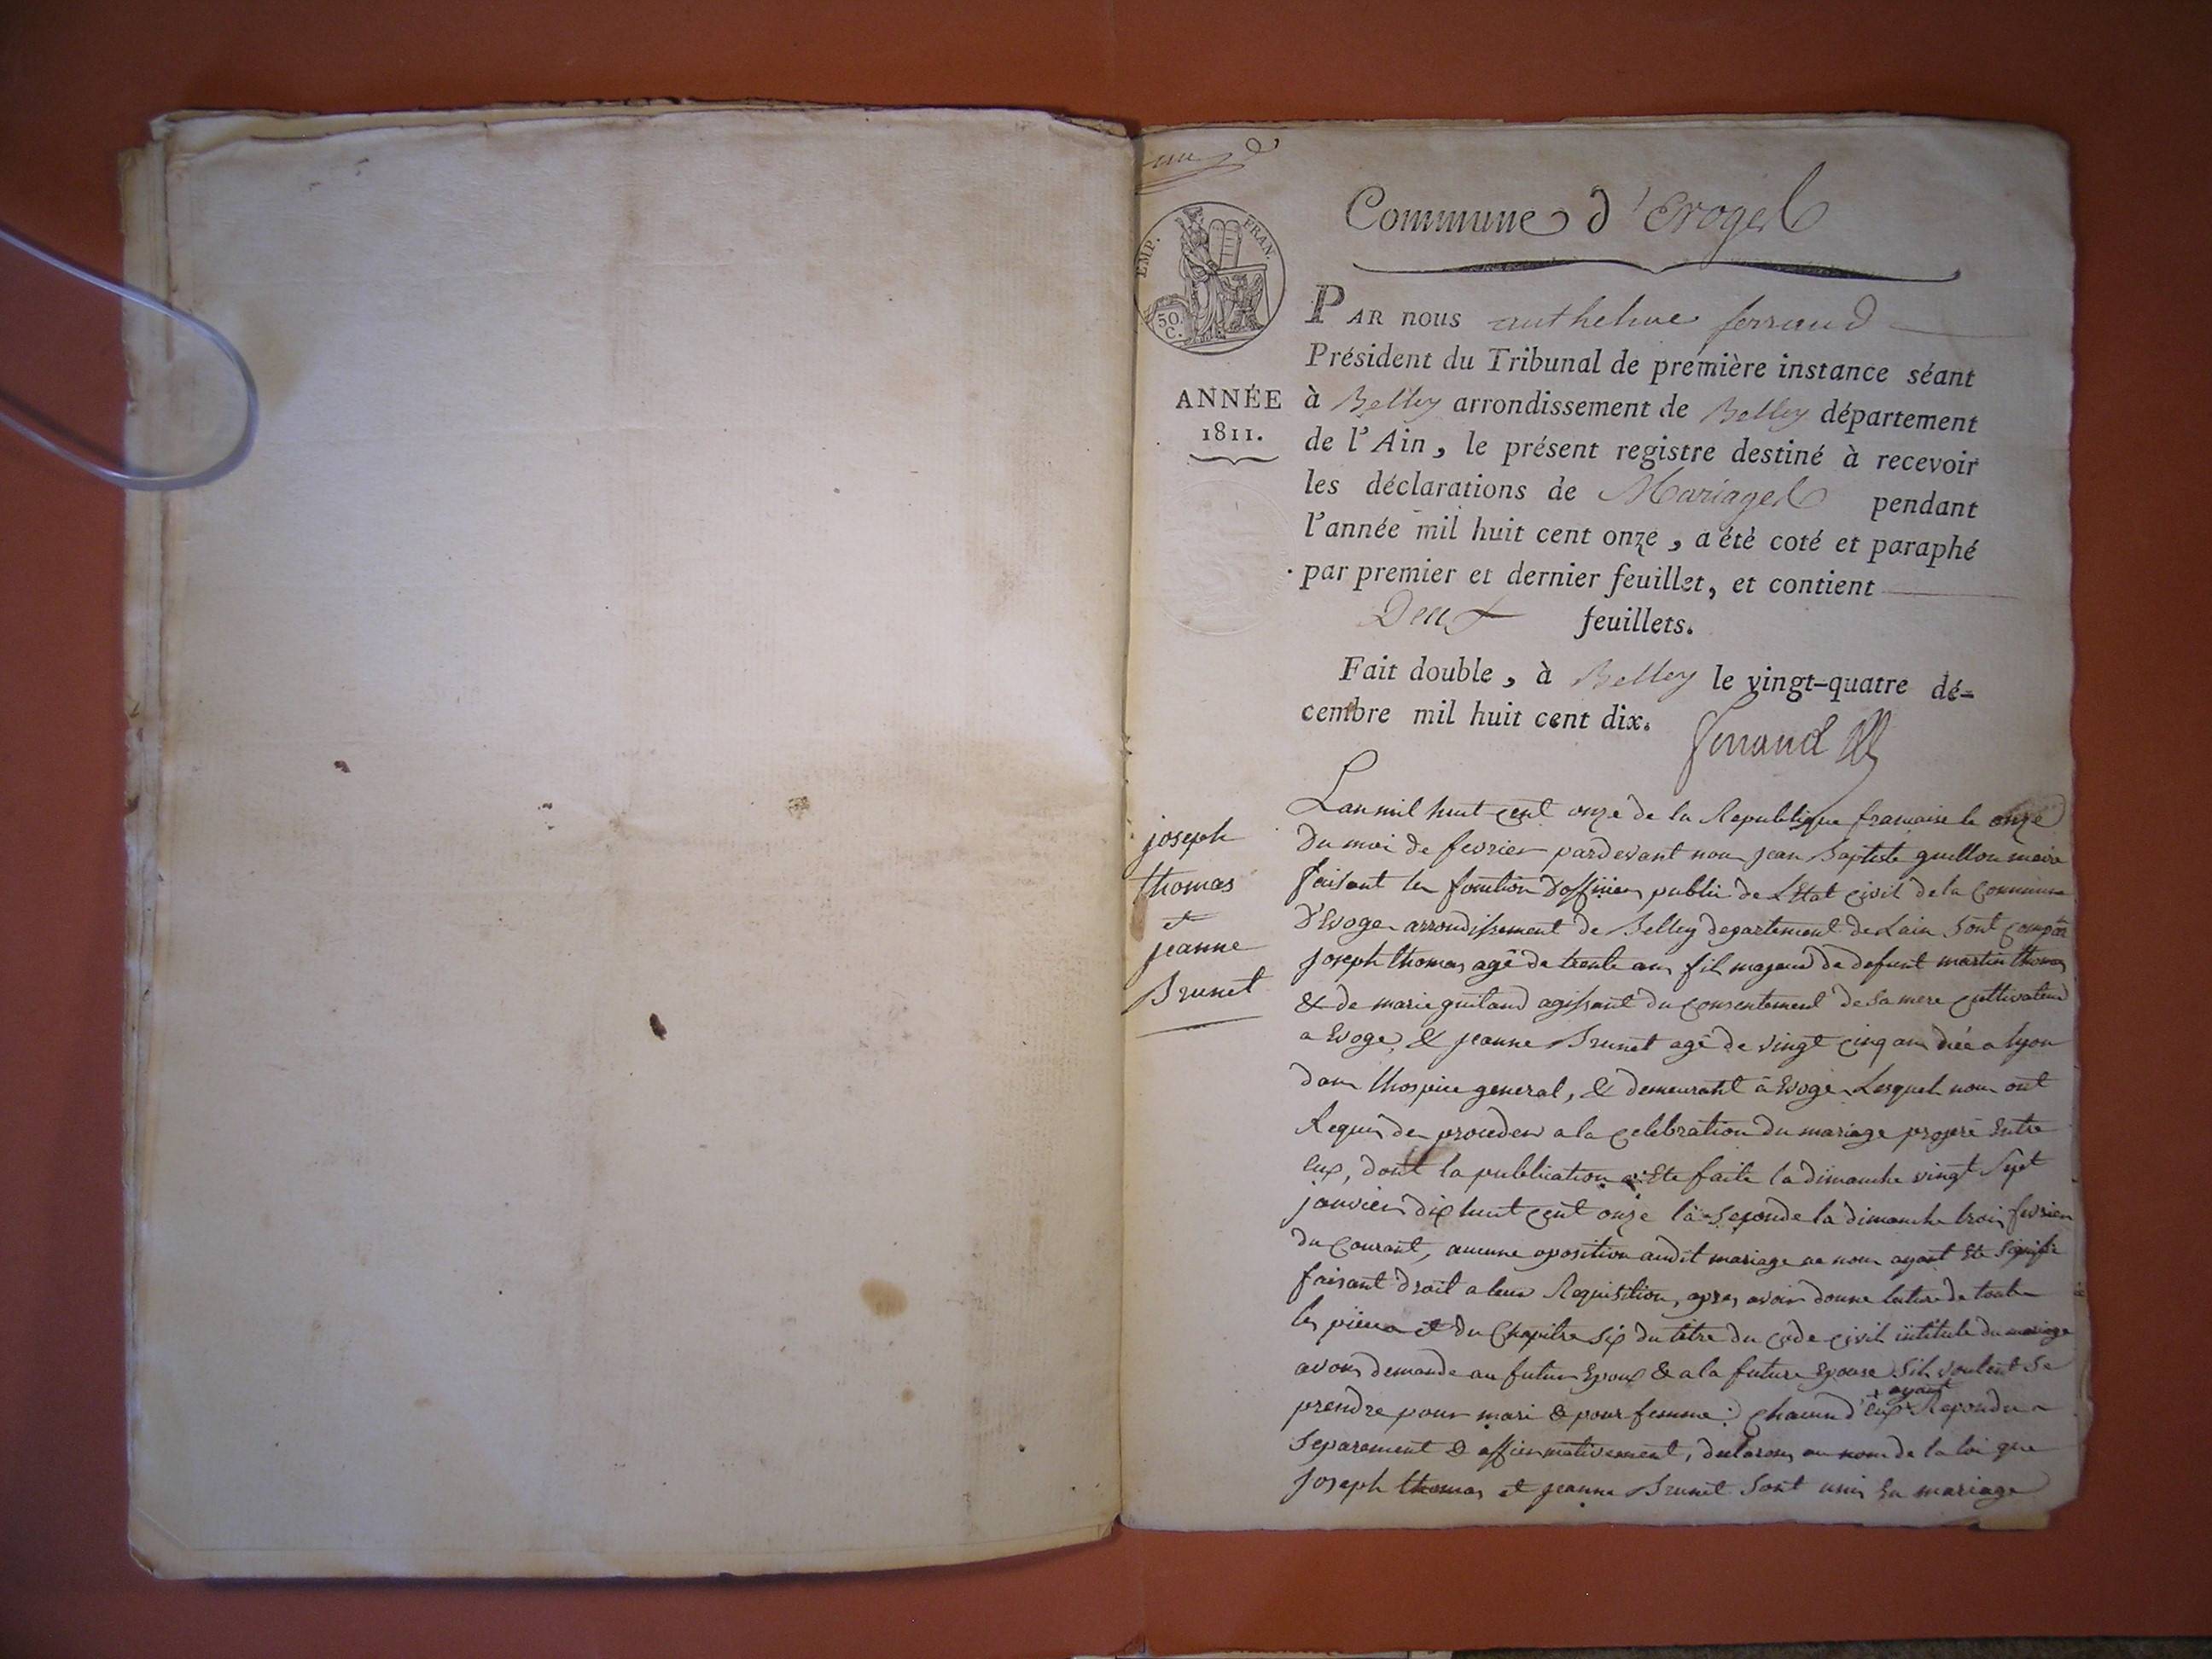 Commune d'Evoges
EMP. FRAN.
30. C.
ANNÉE
1811.
PAR nous anthelme ferrand
Président du Tribunal de première instance séant
à Belley arrondissement de Belley département
de l'Ain, le présent registre destiné à recevoir
les déclarations de Mariages pendant
l'année mil huit cent onze, a été coté et paraphé
par premier et dernier feuillet, et contient
Deux feuillets.
Fait double, à Belley le vingt-quatre dé-
cembre mil huit cent dix.
ferrand
joseph
thomas
et
jeanne
Brunet
Lan mil huit cent onze de la Republique francaise le onze
du moi de fevrier pardevant nous jean Baptiste guillon maire
faisant les fonction d'officier public de L'Etat civil de la Commune
d'Evoge arrondissement de Belley departement de Lain sont compar
joseph thomas agé de trente ans fils majeur de defunt martin thomas
& de marie guitaud agissant du consentement de sa mere cultivateur
a Evoge, & jeanne Brunet agé de vingt cinq ans née a lyon
dans lhospice general, & demeurant a Evoge Lesquels nous ont
Requis de proceder a la celebration du mariage projeté Entre
Eux, dont la publication a Ete faite la dimanche vingt sept
janvier dix huit cent onze la seconde la dimanche trois fevrier
du courant, aucune oposition audit mariage ne nous ayant Ete signifié
faisant droit a leur Requisition, apres avoir donne lecture de toute
les pièces et du Chapitre six du titre du code civil intitule du mariage
avons demande au futur Epoux & a la future Epouse Sils voulent Se
prendre pour mari & pour femme: chacun d'eux ayant Repondu
Separement & affirmativement, declarons au nom de la loi que
joseph thomas et jeanne Brunet Sont unis En mariage